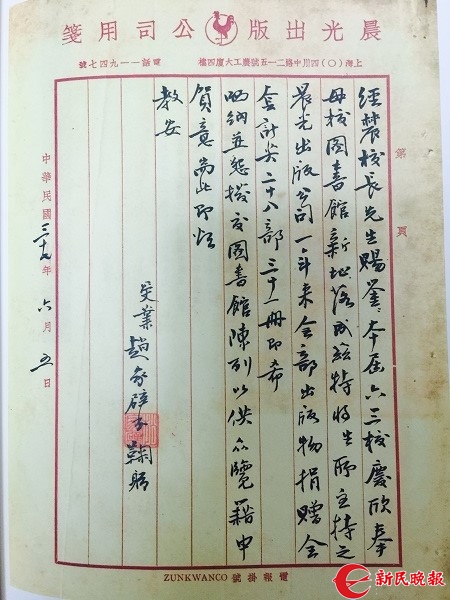 晨光出版公司用箋
上海(〇)四川中路二一五號農工大廈四樓 電話一一九四七號
第 頁
經農校長先生賜鑒：本屆六三校慶欣奉
母校圖書館新址落成茲特將生所主持之
晨光出版公司一年來全部出版物捐贈全
套計共二十八部三十一冊即希
哂納並懇撥交圖書館陳列以供眾覽藉申
賀意耑此即頌
教安
受業趙家璧鞠躬
中華民國三十年六月五日
電報掛號 ZUNKWANCO
新民晚報